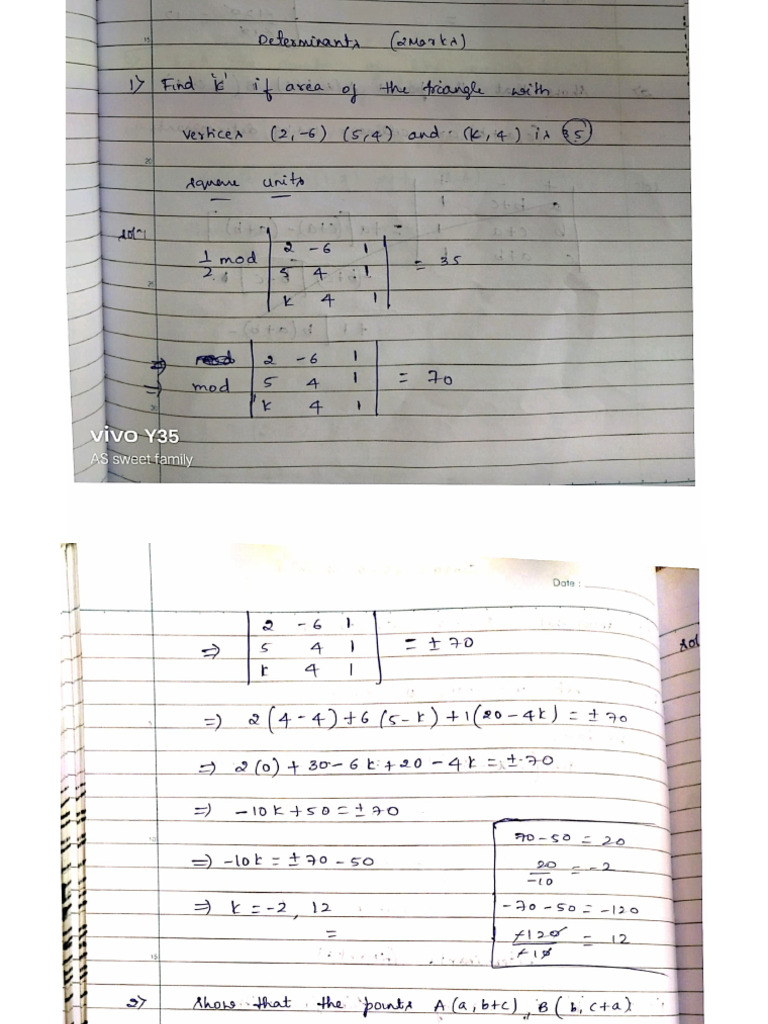 Determinants (2Marks)
1) Find 'k' if area of the triangle with
vertices (2,-6) (5,4) and (k,4) is 35
square units
soln
1/2 mod | 2 -6 1 |
| 5 4 1 | = 35
| k 4 1 |
⇒ | 2 -6 1 |
⇒ mod | 5 4 1 | = 70
| k 4 1 |
vivo Y35
AS sweet family
Date :
| 2 -6 1 |
⇒ | 5 4 1 | = ± 70
| k 4 1 |
⇒ 2(4-4)+6(5-k)+1(20-4k) = ± 70
⇒ 2(0) + 30-6k+20-4k = ± 70
⇒ -10k+50 = ± 70
⇒ -10k = ± 70 - 50
⇒ k = -2, 12
=
70-50 = 20
20/-10 = -2
-70-50 = -120
-120/-10 = 12
sol
2) Show that the points A(a, b+c), B(b, c+a)